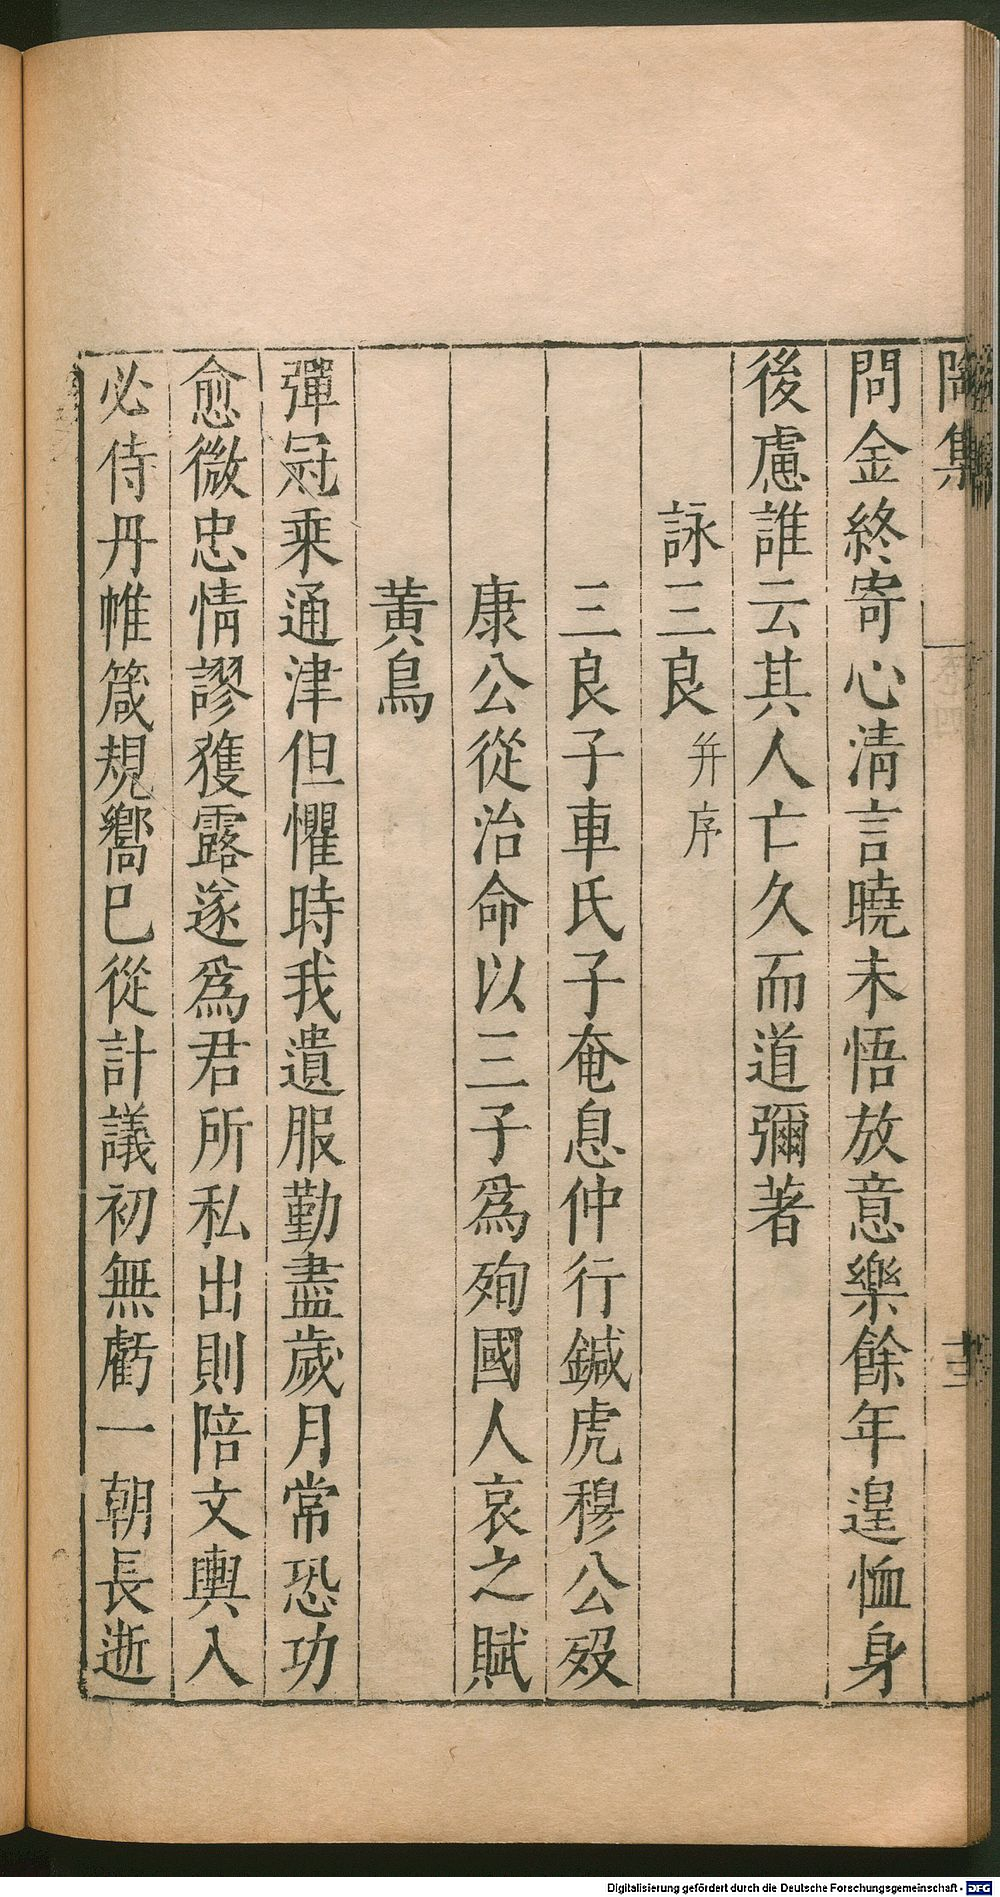 陶集 卷四 十三
問金終寄心清言曉未悟放意樂餘年遑恤身
後慮誰云其人亡久而道彌著
詠三良 并序
三良子車氏子奄息仲行鍼虎穆公殁
康公從治命以三子爲殉國人哀之賦
黃鳥
彈冠乘通津但懼時我遺服勤盡歲月常恐功
愈微忠情謬獲露遂爲君所私出則陪文輿入
必侍丹帷箴規嚮巳從計議初無虧一朝長逝
Digitalisierung gefördert durch die Deutsche Forschungsgemeinschaft - DFG